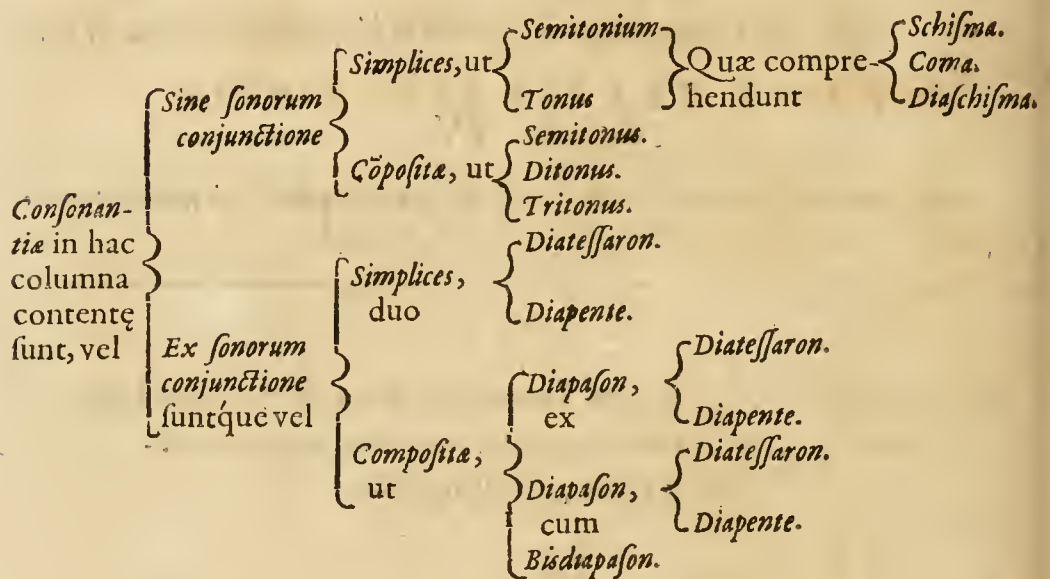 Conſonan-
tiæ in hac
columna
contentę
ſunt, vel
Sine ſonorum
conjunctione
Simplices, ut
Semitonium
Tonus
Quæ compre-
hendunt
Schiſma.
Coma.
Diaſchiſma.
Cõpoſitæ, ut
Semitonus.
Ditonus.
Tritonus.
Ex ſonorum
conjunctione
ſuntq́ue vel
Simplices,
duo
Diateſſaron.
Diapente.
Compoſitæ,
ut
Diapaſon,
ex
Diateſſaron.
Diapente.
Diapaſon,
cum
Diateſſaron.
Diapente.
Bisdiapaſon.